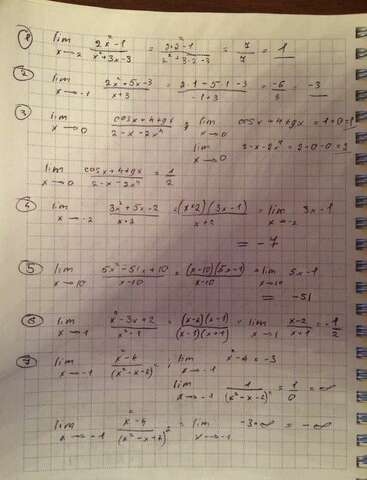 ① lim x→2 (2x²-1)/(x²+3x-3) = (2·2²-1)/(2²+3·2-3) = 7/7 = 1
② lim x→-1 (2x²+5x-3)/(x+3) = (2·1-5·1-3)/(-1+3) = -6/3 = -3
③ lim x→0 (cosx+4+gx)/(2-x-2x⁴) ; lim x→0 cosx+4+gx = 1+0=1
lim x→0 2-x-2x⁴ = 2-0-0=2
lim x→0 (cosx+4+gx)/(2-x-2x⁴) = 1/2
④ lim x→-2 (3x²+5x-2)/(x+2) = (x+2)(3x-1)/(x+2) = lim x→-2 3x-1
= -7
⑤ lim x→10 (5x²-51x+10)/(x-10) = (x-10)(5x-1)/(x-10) = lim x→10 5x-1
= -51
⑥ lim x→1 (x²-3x+2)/(x²-1) = (x-2)(x-1)/(x-1)(x+1) = lim x→1 (x-2)/(x+1) = -1/2
⑦ lim x→-1 (x²-4)/(x²-x-2)² ; lim x→-1 x²-4 = -3
lim x→-1 1/(x²-x-2)² = 1/0 = ∞
lim x→-1 (x²-4)/(x²-x+2)² = lim x→-1 -3·∞ = -∞